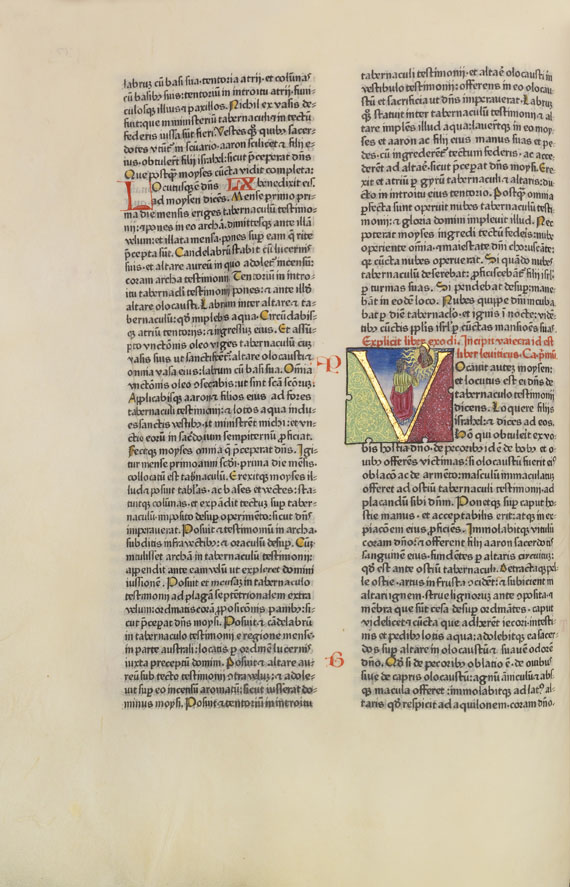 labruʒ cū basi sua·tentoria atrij·et colūnas
cū basibꝰ suis:tentoriū in introitu atrij:funi-
culosqȝ illius ⁊ paxillos. Nichil ex vasis de-
fuit:que ministeriū tabernaculi·⁊ in tectū
federis iussa sūt fieri. Vestes qȝ quibꝰ sacer-
dotes vtūť in sctuario·aaron scilicet ⁊ filij e-
ius·obtulerť filij israhel:sicut pceperat dn̄s
Que postqȝ moyses cūcta vidit completa:
LX benedixit eis.
Locutusqȝ ē dn̄s
ad moysen dicēs. Mense primo pri-
ma die mensis eriges tabernaculū testimo-
nij:⁊ pones in eo archā·dimittesqȝ ante illā
velum:et illata mensa·pones sup eam q̄ rite
pcepta sūt. Candelabrū stabit cū lucernis
suis·et altare aureū in quo adoleť incensū:
coram archa testimonij Tentoriū in intro-
itu tabernacli pones:⁊ ante illd̄
altare olocausti. Labrum inter altare ⁊ ta-
bernaculū:qd̄ implebis aqua. Circūdabis-
qȝ atriū tentorijs:⁊ ingressus eius. Et assū-
pto vnctōnis oleo vnges tabernaculū cuʒ
vasis suis ut sanctificenť:altare olocausti ⁊
omnia vasa eius:labrum cū basi sua. Omīa
vnctōnis oleo cōsecrabis:ut sint scā scōrūʒ.
Applicabisqȝ aaron ⁊ filios eius ad fores
tabernaculi testimonij:⁊ lotos aqua indu-
es sanctis vestibꝰ·ut ministrēt michi:et vn-
ctio eorū in sacdotium sempiternū pficiat.
Fecitqȝ moyses omīa q̄ pceperat dn̄s. Igi-
tur mense primo anni scdi·prima die mēsis·
collocatū est tabnaculū. Erexitqȝ moyses il-
lud:⁊ posuit tablas·ac bases et vectes:sta-
tuitqȝ colūnas·et expādit tectuʒ sup taber-
naculū·imposito desup operimēto:sicut dn̄s
imperauerat. Posuit ⁊ testimoniū in archa·
subditis infra vectibꝰ:⁊ oraculū desup. Cūqȝ
intulisset archā in tabernaculū testimonij:
appendit ante eam velū ut expleret domini
iussionē. Posuit et mensaʒ in tabernaculo
testimonij ad plagā septētrionalem extra
velum:ordinatis corā ppositōnis panibꝰ:si-
cut pcepat dn̄s moysi. Posuit ⁊ cādelabrū
in tabernaculo testimonij e regione mense·
in parte australi:locatis p ordinē lucernis
iuxta preceptū domini. Posuit ⁊ altare au-
reū sub tecto testimonij cōtra velūʒ:⁊ adole-
uit sup eo incensū aromatū:sicut iusserat do-
minus moysi. Posuit ⁊ tentoriū in introitu
tabernaculi testimonij·et altare olocausti in
vestibulo testimonij:offerens in eo olocau-
stū et sacrificia ut dn̄s imperauerat. Labrūʒ
qȝ statuit inter tabernaculū testimonij ⁊ al-
tare implēs illud aqua:lauerūtqȝ in eo moy-
ses et aaron ac filij eius manus suas et pe-
des·cū ingrederenť tectum federis·ac acce-
derēt ad altare·sicut pceperat dn̄s moysi. Ere-
xit et atriū p gyrū tabernaculi ⁊ altaris:du-
cto in introitu eius tentorio. Postqȝ omīa
pfecta sunt operuit nubes tabernaculū testi-
monij:⁊ gloria domini impleuit illud. Nec
poterat moyses ingredi tectū federis·nube
operiente omīa·⁊ maiestate dn̄i choruscāte:
qȝ cūcta nubes operuerat. Si quādo nubes
tabernaculū deserebat:pficiscebāť filij isrl̄
p turmas suas. Si pendebat desup:mane-
bāt in eodē loco. Nubes quippe dn̄i incuba-
bat p diē tabernaclo·et ignis ī nocte:vidē-
tibꝰ cūctis pplis isrl̄ p cūctas mansiōes suas
Explicit liber exodi. Incipit vaiecra id est
liber leuiticus. Ca. pmū.
P
VOcauit autēʒ moysen:
et locutus est ei dn̄s de
tabernaculo testimonij
dicens. Loquere filijs
israhel:⁊ dices ad eos.
Hō qui obtulerit ex vo-
bis hostiā dn̄o·de pecoribꝰ id ē de bobꝰ et o-
uibꝰ offerēs victimas:si olocaustū fuerit eiꝰ
oblacō ac de armēto:masculū īmaculatuʒ
offeret ad ostiū tabernaculi testimonij·ad
placandū sibi dn̄m. Ponetqȝ sup caput ho-
stie manus·et acceptabilis erit:atqȝ in ex-
piacōem eius pficiēs. Immolabitqȝ vitulū
coram dn̄o:⁊ offerent filij aaron sacerdotes
sanguinē eius·fundētes p altaris circuituʒ:
qd̄ est ante ostiū tabernaculi. Detractaqȝ pel-
le hostie·artus in frusta cōcidēt:⁊ subicient in
altari ignem·strue lignorūʒ ante cōposita·⁊
mēbra que sūt cesa desup ordinātes·caput
videlicet·⁊ cūcta que adherēt iecori·intesti-
nis et pedibꝰ lotis aqua:adolebitqȝ ea sacer-
dos sup altare in olocaustū ⁊ suauē odorē
B
dn̄o. Qd̄ si de pecoribꝰ oblatio ē·de ouibus
siue de capris olocaustū:agnū āniculū ⁊ abs-
qȝ macula offeret:immolabitqȝ ad latꝰ al-
taris qd̄ respicit ad aquilonem·coram dn̄o.